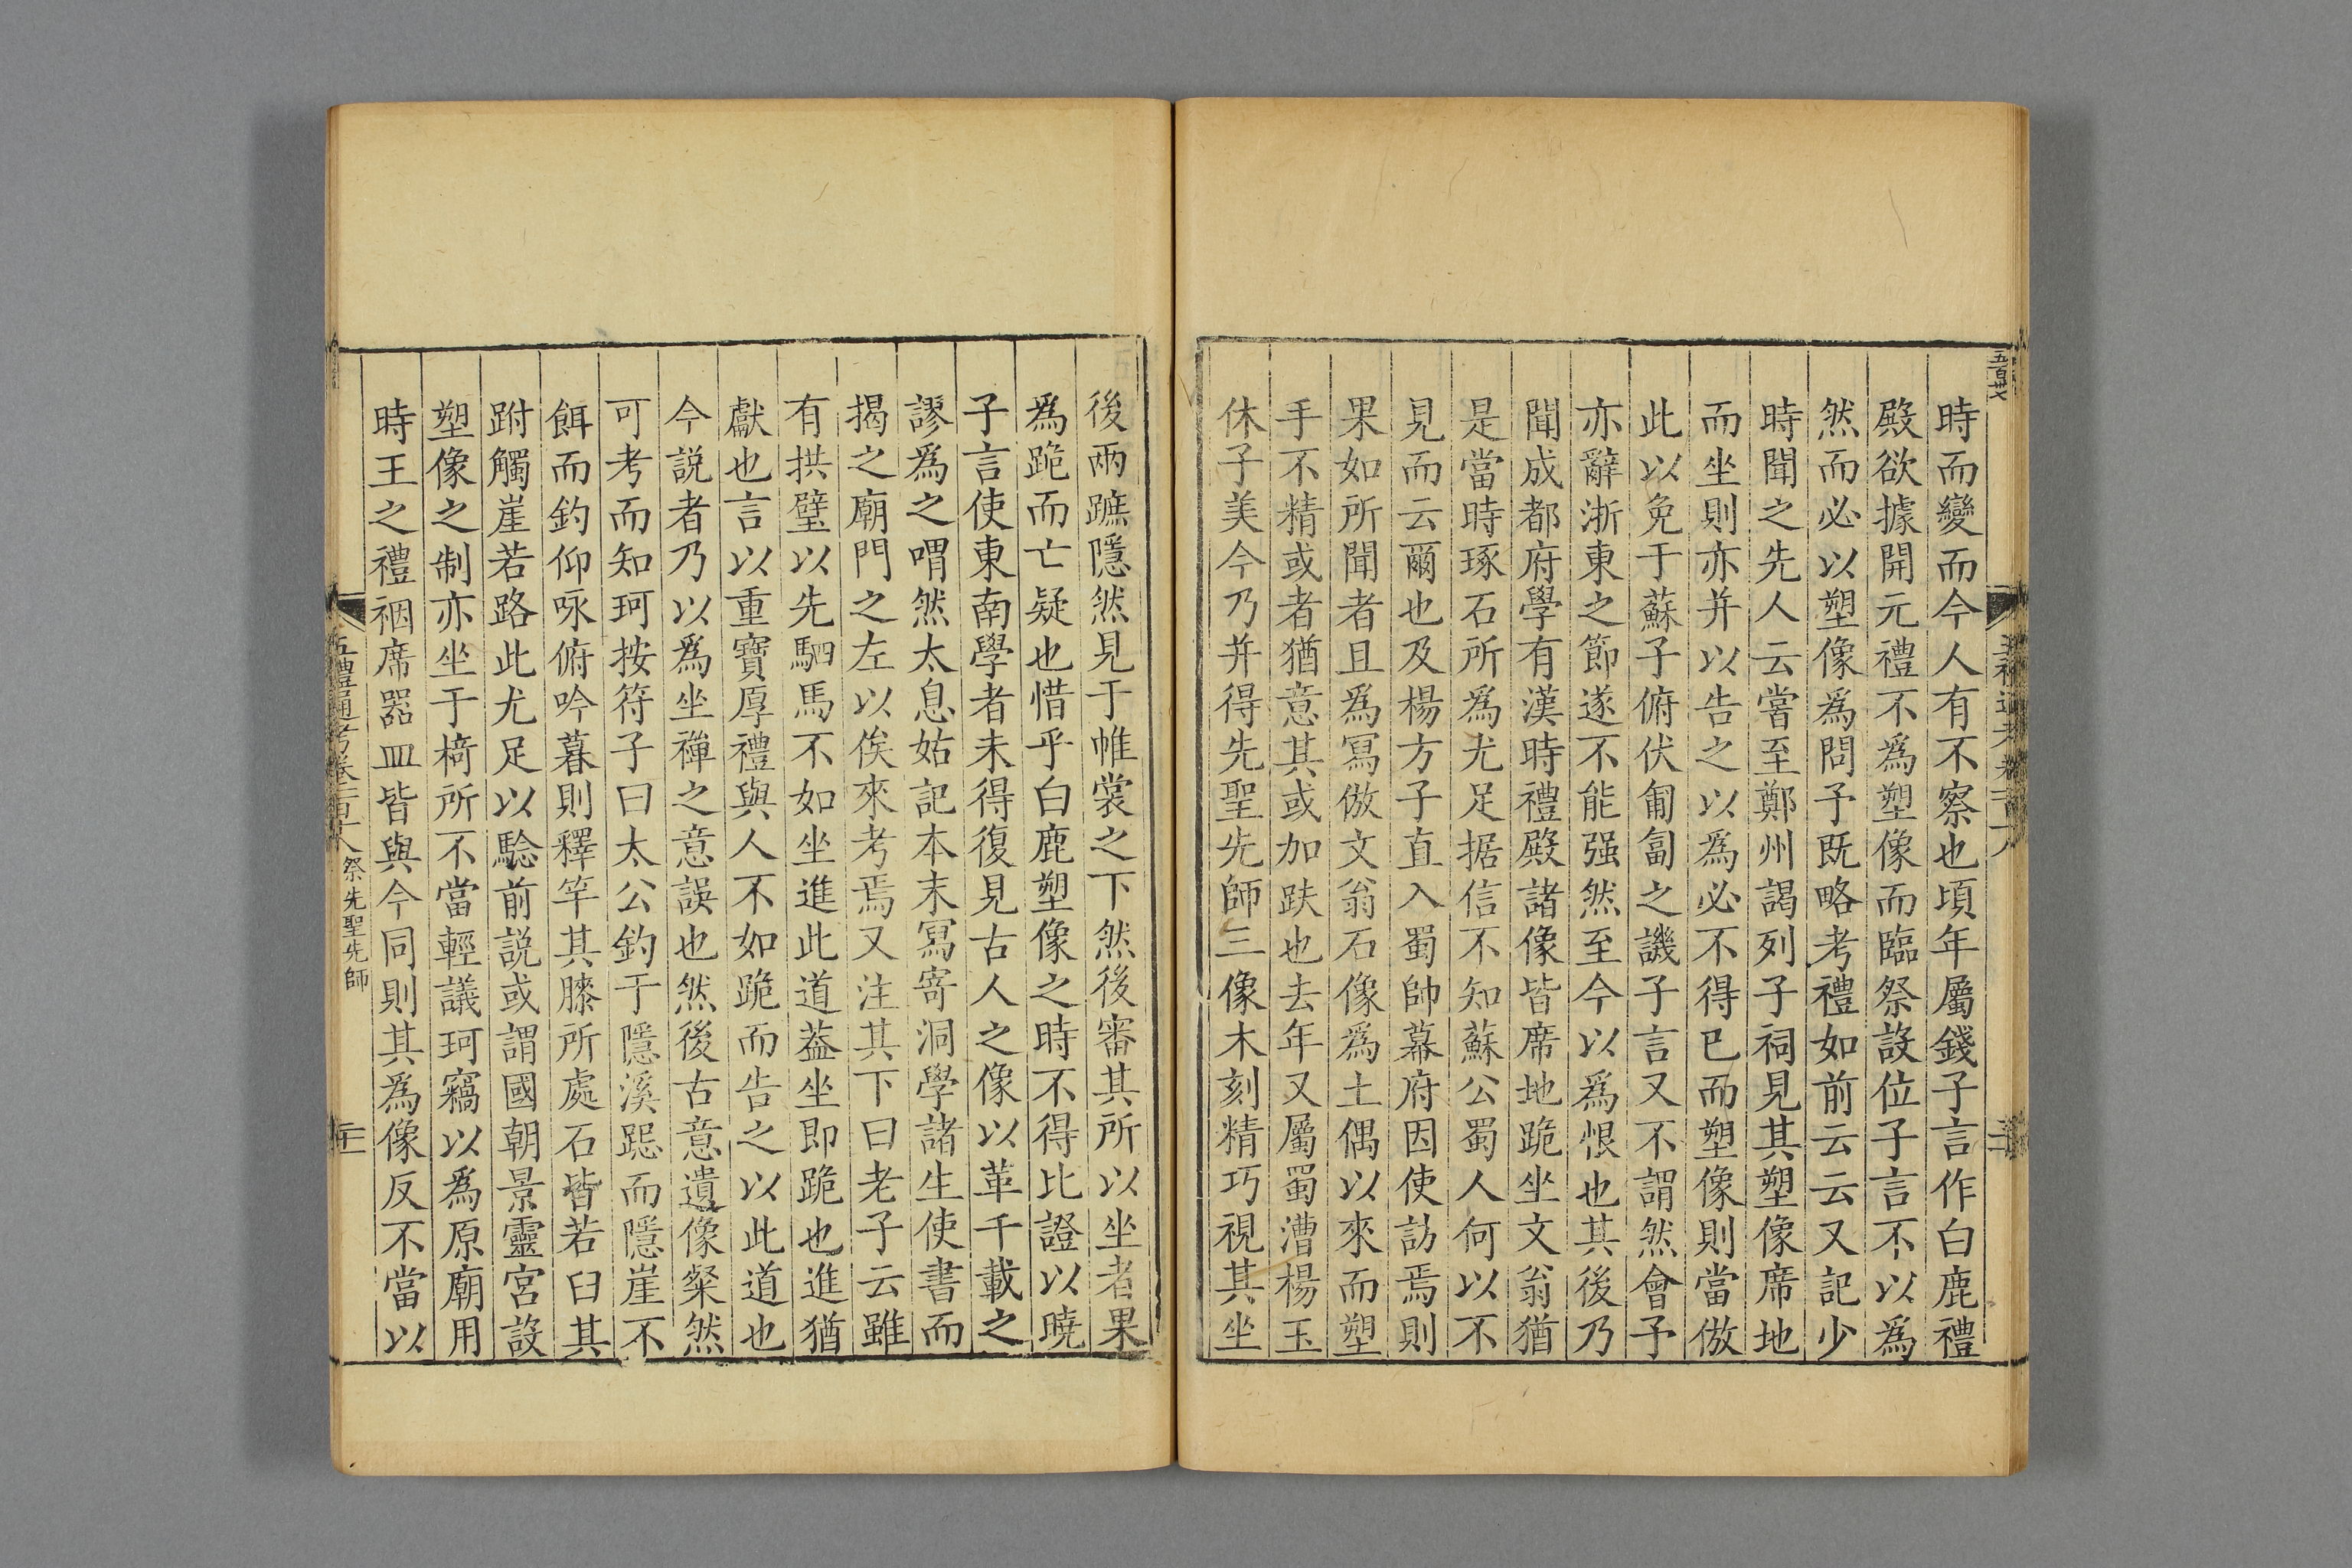 五百卅七
時而變而今人有不察也頃年屬錢子言作白鹿禮
殿欲據開元禮不為塑像而臨祭設位子言不以為
然而必以塑像為問予既略考禮如前云云又記少
時聞之先人云嘗至鄭州謁列子祠見其塑像席地
而坐則亦并以告之以為必不得已而塑像則當倣
此以免于蘇子俯伏匍匐之譏子言又不謂然會予
亦辭浙東之節遂不能强然至今以為恨也其後乃
聞成都府學有漢時禮殿諸像皆席地跪坐文翁猶
是當時琢石所為尤足据信不知蘇公蜀人何以不
見而云爾也及楊方子直入蜀帥幕府因使訪焉則
果如所聞者且為寫倣文翁石像為土偶以來而塑
手不精或者猶意其或加趺也去年又屬蜀漕楊玉
休子美今乃并得先聖先師三像木刻精巧視其坐
後兩蹠隱然見于帷裳之下然後審其所以坐者果
為跪而亡疑也惜乎白鹿塑像之時不得比證以曉
子言使東南學者未得復見古人之像以革千載之
謬為之喟然太息姑記本末寫寄洞學諸生使書而
揭之廟門之左以俟來考焉又注其下曰老子云雖
有拱璧以先駟馬不如坐進此道葢坐即跪也進猶
獻也言以重寶厚禮與人不如跪而告之以此道也
今説者乃以為坐禪之意誤也然後古意遺像粲然
可考而知珂按符子曰太公釣于隱溪跽而隱崖不
餌而釣仰咏俯吟暮則釋竿其膝所處石皆若臼其
跗觸崖若路此尤足以騐前説或謂國朝景靈宮設
塑像之制亦坐于椅所不當輕議珂竊以為原廟用
時王之禮裀席器皿皆與今同則其為像反不當以
五禮通考卷一百十八 祭先聖先師